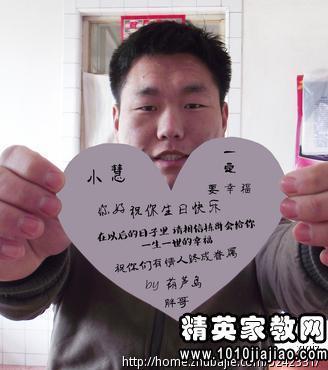 小慧
一定
要幸福
你好祝你生日快乐
在以后的日子里 请相信 会给你
一生一世的幸福
祝你们有情人终成眷属
by 葫芦岛
胖哥
精英家教网
http://home.zhubajie.com/52423317
www.1010jiajiao.com